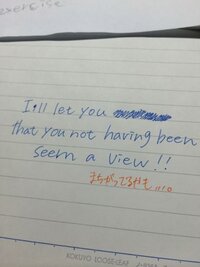 exercise
I'll let you
that you not having been
seem a view!!
まちがってるかも....。
KOKUYO LOOSE-LEAF